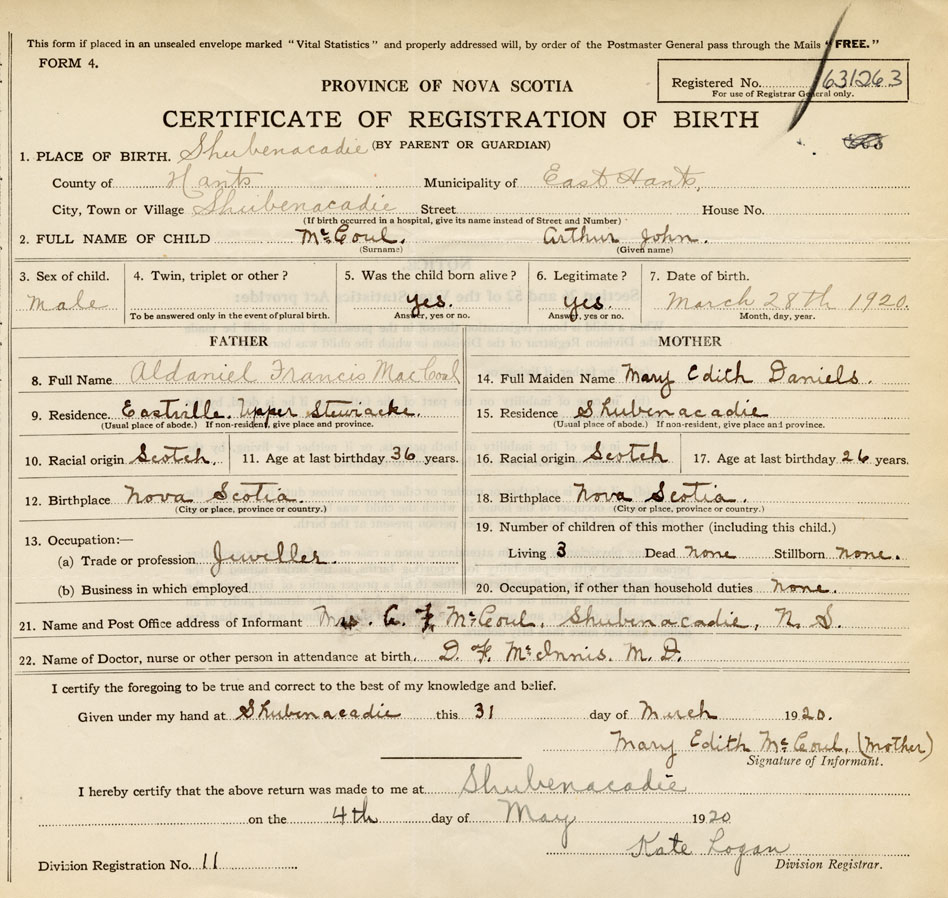 This form if placed in an unsealed envelope marked "Vital Statistics" and properly addressed will, by order of the Postmaster General pass through the Mails "FREE."
FORM 4.
PROVINCE OF NOVA SCOTIA
Registered No. 631263
For use of Registrar General only.
CERTIFICATE OF REGISTRATION OF BIRTH
(BY PARENT OR GUARDIAN)
1. PLACE OF BIRTH. Shubenacadie
County of Hants Municipality of East Hants.
City, Town or Village Shubenacadie Street House No.
(If birth occurred in a hospital, give its name instead of Street and Number)
2. FULL NAME OF CHILD McCoul. Arthur John.
(Surname) (Given name)
3. Sex of child. 4. Twin, triplet or other? 5. Was the child born alive? 6. Legitimate? 7. Date of birth.
Male yes. yes. March 28th 1920.
To be answered only in the event of plural birth. Answer, yes or no. Answer, yes or no. Month, day, year.
FATHER MOTHER
8. Full Name Aldaniel Francis MacCoul 14. Full Maiden Name Mary Edith Daniels.
9. Residence. Eastville. Upper Stewiacke. 15. Residence Shubenacadie
(Usual place of abode.) If non-resident, give place and province. (Usual place of abode.) If non-resident, give place and province.
10. Racial origin Scotch. 11. Age at last birthday 36 years. 16. Racial origin Scotch 17. Age at last birthday 26 years.
12. Birthplace Nova Scotia. 18. Birthplace Nova Scotia.
(City or place, province or country.) (City or place, province or country.)
13. Occupation:— 19. Number of children of this mother (including this child.)
(a) Trade or profession Jeweller. Living 3 Dead none Stillborn none.
(b) Business in which employed 20. Occupation, if other than household duties None.
21. Name and Post Office address of Informant Mrs. A. F. McCoul. Shubenacadie, N. S.
22. Name of Doctor, nurse or other person in attendance at birth. D. F. McInnis. M. D.
I certify the foregoing to be true and correct to the best of my knowledge and belief.
Given under my hand at Shubenacadie this 31 day of March 1920.
Mary Edith McCoul. (Mother)
Signature of Informant.
I hereby certify that the above return was made to me at Shubenacadie
on the 4th day of May 1920
Kate Logan
Division Registration No. 11 Division Registrar.